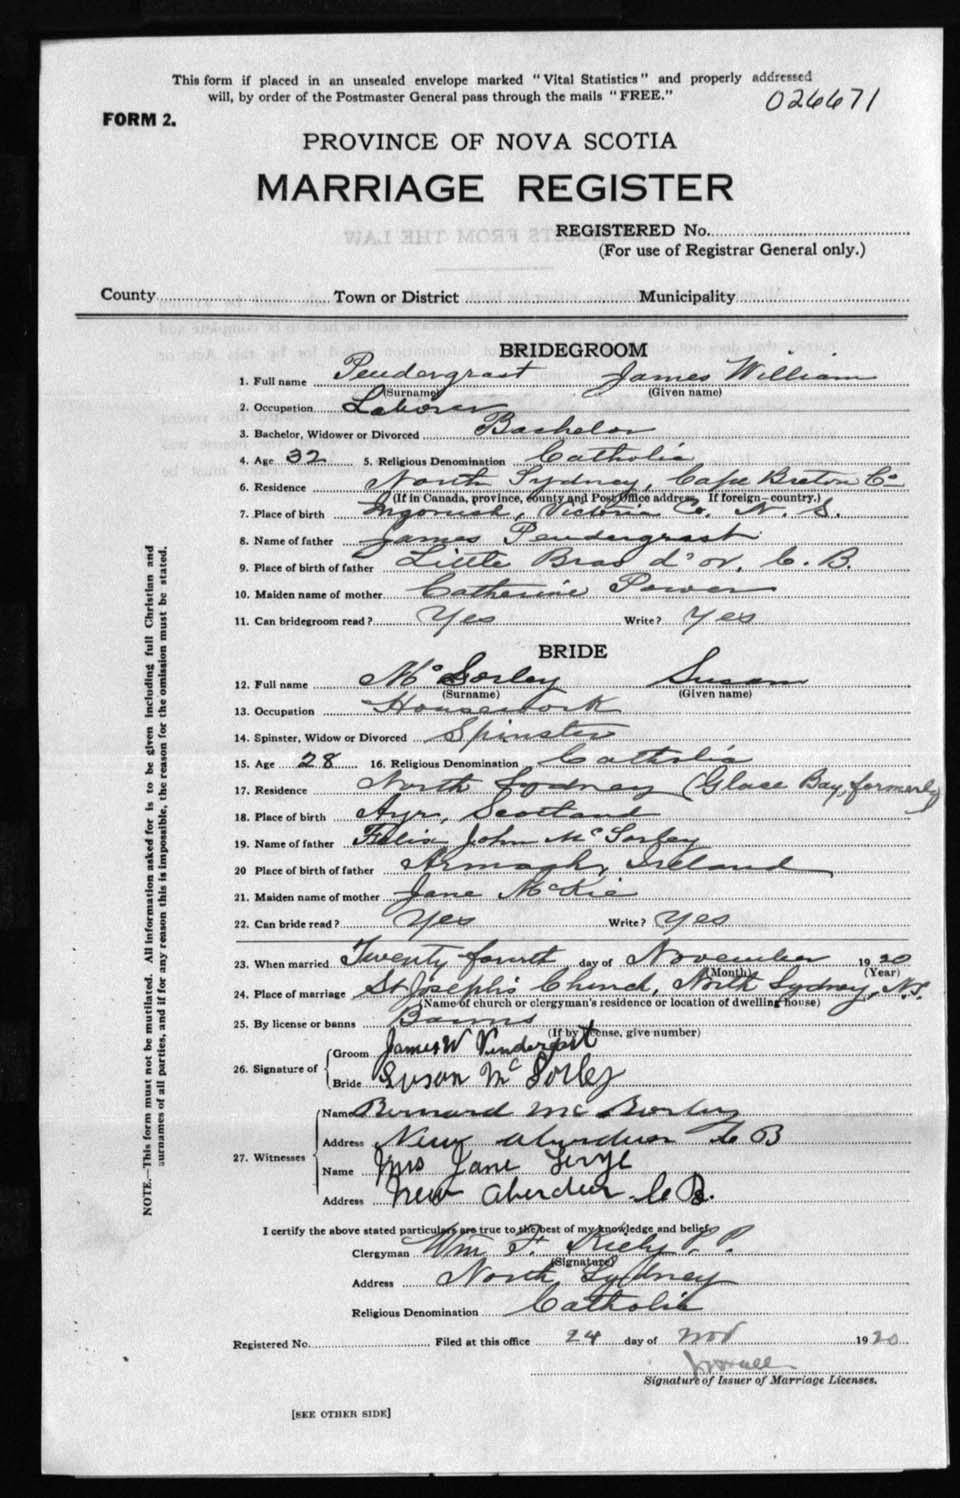 This form if placed in an unsealed envelope marked "Vital Statistics" and properly addressed
will, by order of the Postmaster General pass through the mails "FREE."
026671
FORM 2.
PROVINCE OF NOVA SCOTIA
MARRIAGE REGISTER
REGISTERED No.
(For use of Registrar General only.)
County Town or District Municipality
BRIDEGROOM
1. Full name Pendergrast James William
(Surname) (Given name)
2. Occupation Laborer
3. Bachelor, Widower or Divorced Bachelor
4. Age 32 5. Religious Denomination Catholic
6. Residence North Sydney, Cape Breton Co
(If in Canada, province, county and Post Office address. If foreign—country.)
7. Place of birth Ingonish, Victoria Co. N. S.
8. Name of father James Pendergrast
9. Place of birth of father Little Bras d'or, C. B.
10. Maiden name of mother Catherine Power
11. Can bridegroom read? Yes Write? Yes
BRIDE
12. Full name McSorley Susan
(Surname) (Given name)
13. Occupation Housework
14. Spinster, Widow or Divorced Spinster
15. Age 28 16. Religious Denomination Catholic
17. Residence North Sydney (Glace Bay, formerly
18. Place of birth Ayr, Scotland
19. Name of father Felix John McSorley
20 Place of birth of father Armagh, Ireland
21. Maiden name of mother Jane McKie
22. Can bride read? Yes Write? Yes
23. When married Twenty fourth day of November 1920
(Month) (Year)
24. Place of marriage St Joseph's Church, North Sydney, N.S.
(Name of church or clergyman's residence or location of dwelling house)
25. By license or banns Banns
(If by license, give number)
26. Signature of
Groom James W Pendergast
Bride Susan McSorley
27. Witnesses
Name Bernard McSorley
Address New Aberdeen C B
Name Mrs Jane
Address New Aberdeen C B.
I certify the above stated particulars are true to the best of my knowledge and belief.
Clergyman Wm F. Kiely P. P.
(Signature)
Address North Sydney
Religious Denomination Catholic
Registered No. Filed at this office 24 day of Nov 1920
Signature of Issuer of Marriage Licenses.
[SEE OTHER SIDE]
NOTE.—This form must not be mutilated. All information asked for is to be given including full Christian and
surnames of all parties, and if for any reason this is impossible, the reason for the omission must be stated.